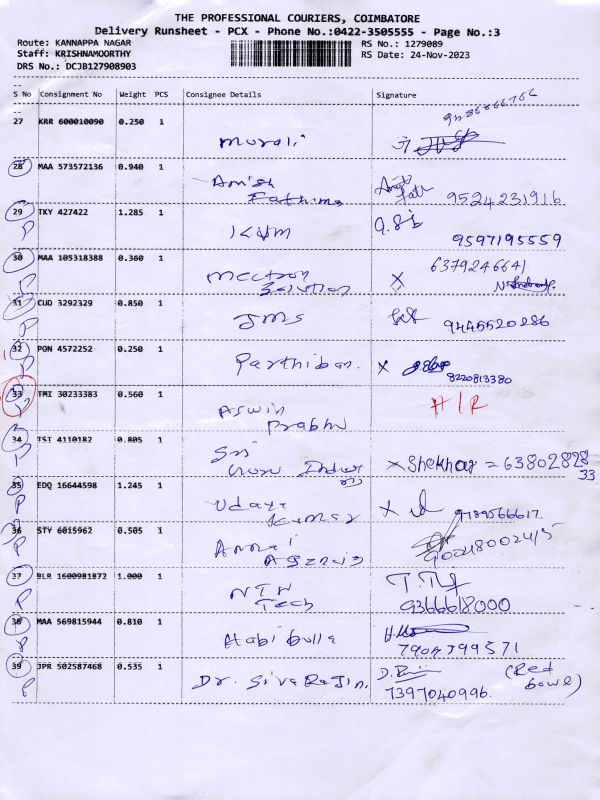 THE PROFESSIONAL COURIERS, COIMBATORE
Delivery Runsheet - PCX - Phone No.:0422-3505555 - Page No.:3
Route: KANNAPPA NAGAR RS No.: 1279089
Staff: KRISHNAMOORTHY RS Date: 24-Nov-2023
DRS No.: DCJB127908903
S No Consignment No Weight PCS Consignee Details Signature
27 KRR 600010090 0.250 1 Murali
28 MAA 573572136 0.940 1 Anish
Fathima 9524231916
29 TKY 427422 1.285 1 KVM
P 9597195559
30 MAA 105318388 0.360 1 Mectron X 6379246641
Solution
31 CUD 3292329 0.850 1 JMS
P 9445520286
32 PON 4572252 0.250 1 Parthiban. X
P 8220813380
33 TMI 30233383 0.560 1 Aswin H/R
Prabhu
34 TSI 4110182 0.805 1 Sri X Shekhar = 63802828
Guru 33
35 EDQ 16644598 1.245 1 Udaya X
P Kumar 9189566617
36 STY 6015962 0.505 1 Annai
P Agencis 9002180024/5
37 BLR 1600981872 1.000 1 NTH
P Tech 9366618000
38 MAA 569815944 0.810 1 Habibulla
P 7904799571
39 JPR 502587468 0.535 1 Dr. Siva Rajin. (Red
P 7397040996. bowl)